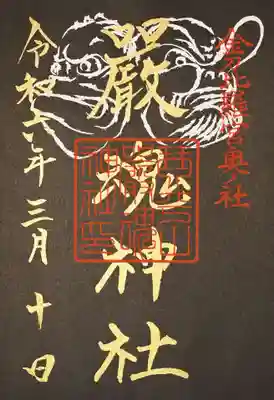 金刀比羅宮奥社
嚴魂神社
令和六年三月十日